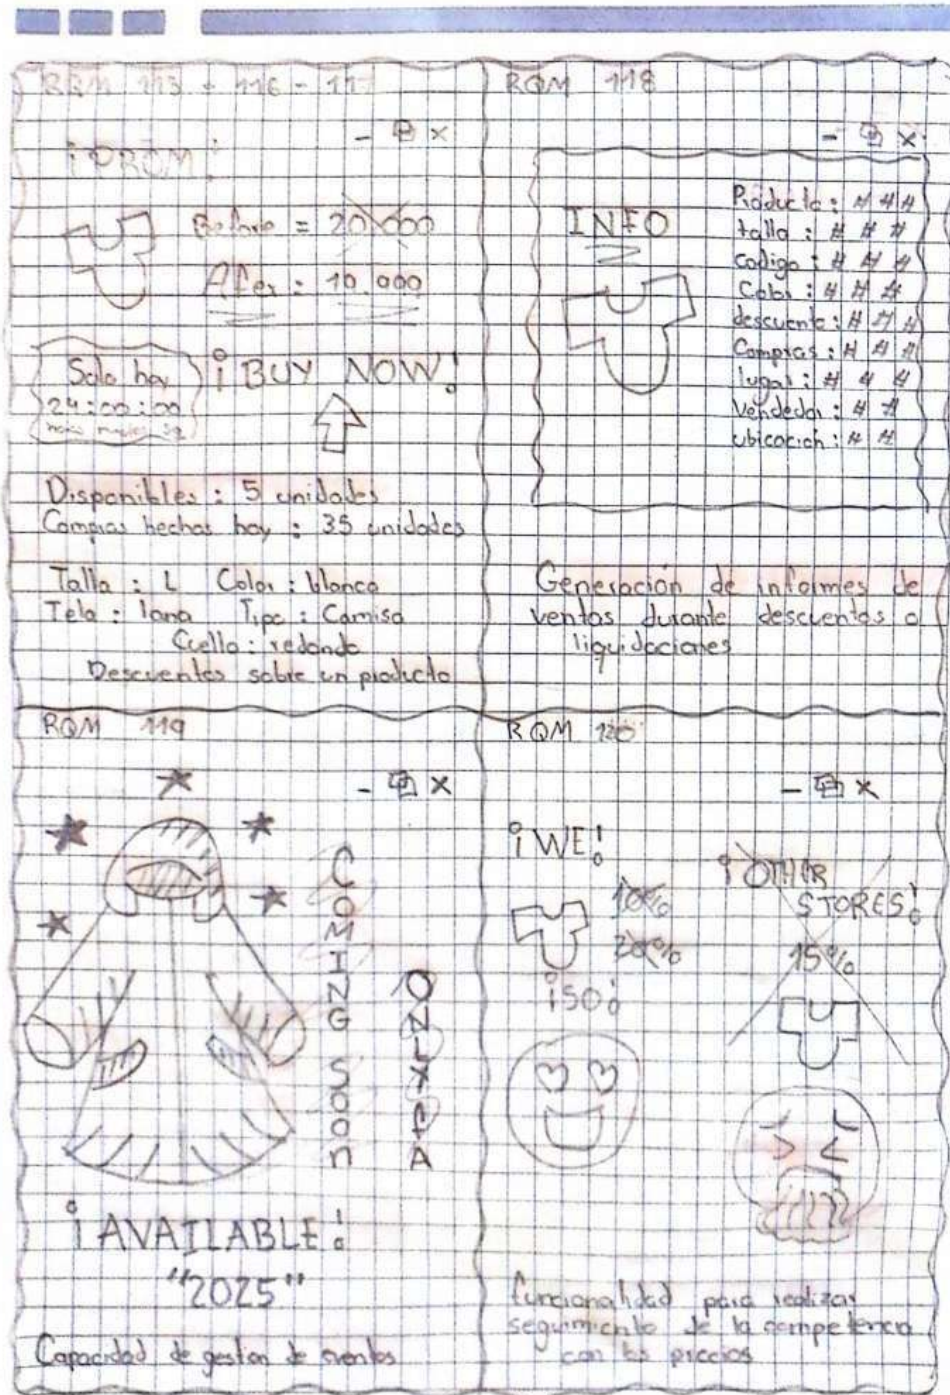 RQM 115 - 116 - 117
¡PROM!
Before = 20.000
After : 10.000
Solo hoy
24:00:00
¡BUY NOW!
Disponibles : 5 unidades
Compras hechas hoy : 35 unidades
Talla : L Color : blanco
Tela : lana Tipo : Camisa
Cuello : redondo
Descuentos sobre un producto
RQM 118
INFO
Producto : # # #
talla : # # #
codigo : # # #
Color : # # #
descuento : # # #
Compras : # # #
lugar : # # #
Vendedor : # #
ubicacion : # #
Generación de informes de
ventas durante descuentos o
liquidaciones
RQM 119
COMING SOON
¡AVAILABLE!
"2025"
Capacidad de gestion de eventos
RQM 120
¡WE!
10%
20%
¡SO!
¡OTHER
STORES!
15%
funcionalidad para realizar
seguimiento de la competencia
con los precios